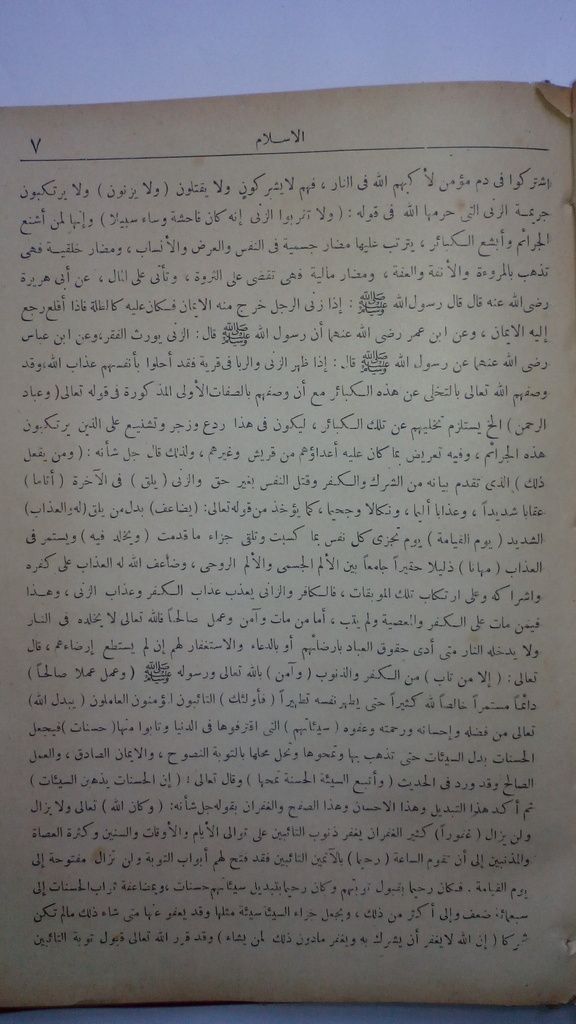 الاسلام ٧
اشتركوا فى دم مؤمن لأكبهم الله فى النار ، فهم لايشركون ولا يقتلون ( ولا يزنون ) ولا يرتكبون
جريمة الزنى التى حرمها الله فى قوله : ( ولا تقربوا الزنى إنه كان فاحشة وساء سبيلا ) وإنها لمن أشنع
الجرائم وأبشع الكبائر ، يترتب عليها مضار جسمية فى النفس والعرض والأنساب ، ومضار خلقية فهى
تذهب بالمروءة والأنفة والعفة ، ومضار مالية فهى تقضى على الثروة ، وتأتى على المال ، عن أبى هريرة
رضى الله عنه قال قال رسول الله ﷺ : إذا زنى الرجل خرج منه الايمان فكان عليه كالظلة فاذا أقلع رجع
إليه الايمان ، وعن ابن عمر رضى الله عنهما أن رسول الله ﷺ قال : الزنى يورث الفقر ، وعن ابن عباس
رضى الله عنهما عن رسول الله ﷺ قال : إذا ظهر الزنى والربا فى قرية فقد أحلوا بأنفسهم عذاب الله ، وقد
وصفهم الله تعالى بالتخلى عن هذه الكبائر مع أن وصفهم بالصفات الأولى المذكورة فى قوله تعالى ( وعباد
الرحمن ) الخ يستلزم تخليهم عن تلك الكبائر ، ليكون فى هذا ردع وزجر وتشنيع على الذين يرتكبون
هذه الجرائم ، وفيه تعريض بما كان عليه أعداؤهم من قريش وغيرهم ، ولذلك قال جل شأنه : ( ومن يفعل
ذلك ) الذى تقدم بيانه من الشرك والكفر وقتل النفس بغير حق والزنى ( يلق ) فى الآخرة ( أثاما )
عقابا شديداً ، وعذابا أليما ، ونكالا وجحيما ، كما يؤخذ من قوله تعالى : ( يضاعف ) بدل من يلق ( له والعذاب )
الشديد ( يوم القيامة ) يوم تجزى كل نفس بما كسبت وتلقى جزاء ما قدمت ( ويخلد فيه ) ويستمر فى
العذاب ( مهانا ) ذليلا حقيراً جامعاً بين الألم الجسمى والألم الروحى ، وضاعف الله له العذاب على كفره
واشراكه وعلى ارتكاب تلك الموبقات ، فالكافر والزانى يعذب عذاب الكفر وعذاب الزنى ، وهذا
فيمن مات على الكفر والمعصية ولم يتب ، أما من مات وآمن وعمل صالحاً فالله تعالى لا يخلده فى النار
ولا يدخله النار متى أدى حقوق العباد بارضائهم أو بالدعاء والاستغفار لهم إن لم يستطع إرضاءهم ، قال
تعالى : ( إلا من تاب ) من الكفر والذنوب ( وآمن ) بالله تعالى ورسوله ﷺ ( وعمل عملا صالحاً )
دائماً مستمراً خالصاً لله كثيراً حتى يطهر نفسه تطهيراً ( فأولئك ) التائبون المؤمنون العاملون ( يبدل الله )
تعالى من فضله وإحسانه ورحمته وعفوه ( سيئاتهم ) التى اقترفوها فى الدنيا وتابوا منها ( حسنات ) فيجعل
الحسنات بدل السيئات حتى تذهب بها وتمحوها وتحل محلها بالتوبة النصوح ، والايمان الصادق ، والعمل
الصالح وقد ورد فى الحديث ( وأتبع السيئة الحسنة تمحها ) وقال تعالى : ( إن الحسنات يذهبن السيئات )
ثم أكد هذا التبديل وهذا الاحسان وهذا الصفح والغفران بقوله جل شأنه : ( وكان الله ) تعالى ولا يزال
ولن يزال ( غفوراً ) كثير الغفران يغفر ذنوب التائبين على توالى الأيام والأوقات والسنين وكثرة العصاة
والمذنبين إلى أن تقوم الساعة ( رحيما ) بالآثمين التائبين فقد فتح لهم أبواب التوبة ولن تزال مفتوحة إلى
يوم القيامة . فكان رحيما بقبول توبتهم وكان رحيما بتبديل سيئاتهم حسنات ، وبمضاعفة ثواب الحسنات إلى
سبعمائة ضعف وإلى أكثر من ذلك ، ويجعل جزاء السيئة سيئة مثلها وقد يعفو عنها متى شاء ذلك مالم تكن
شركا ( إن الله لا يغفر أن يشرك به ويغفر مادون ذلك لمن يشاء ) وقد قرر الله تعالى قبول توبة التائبين